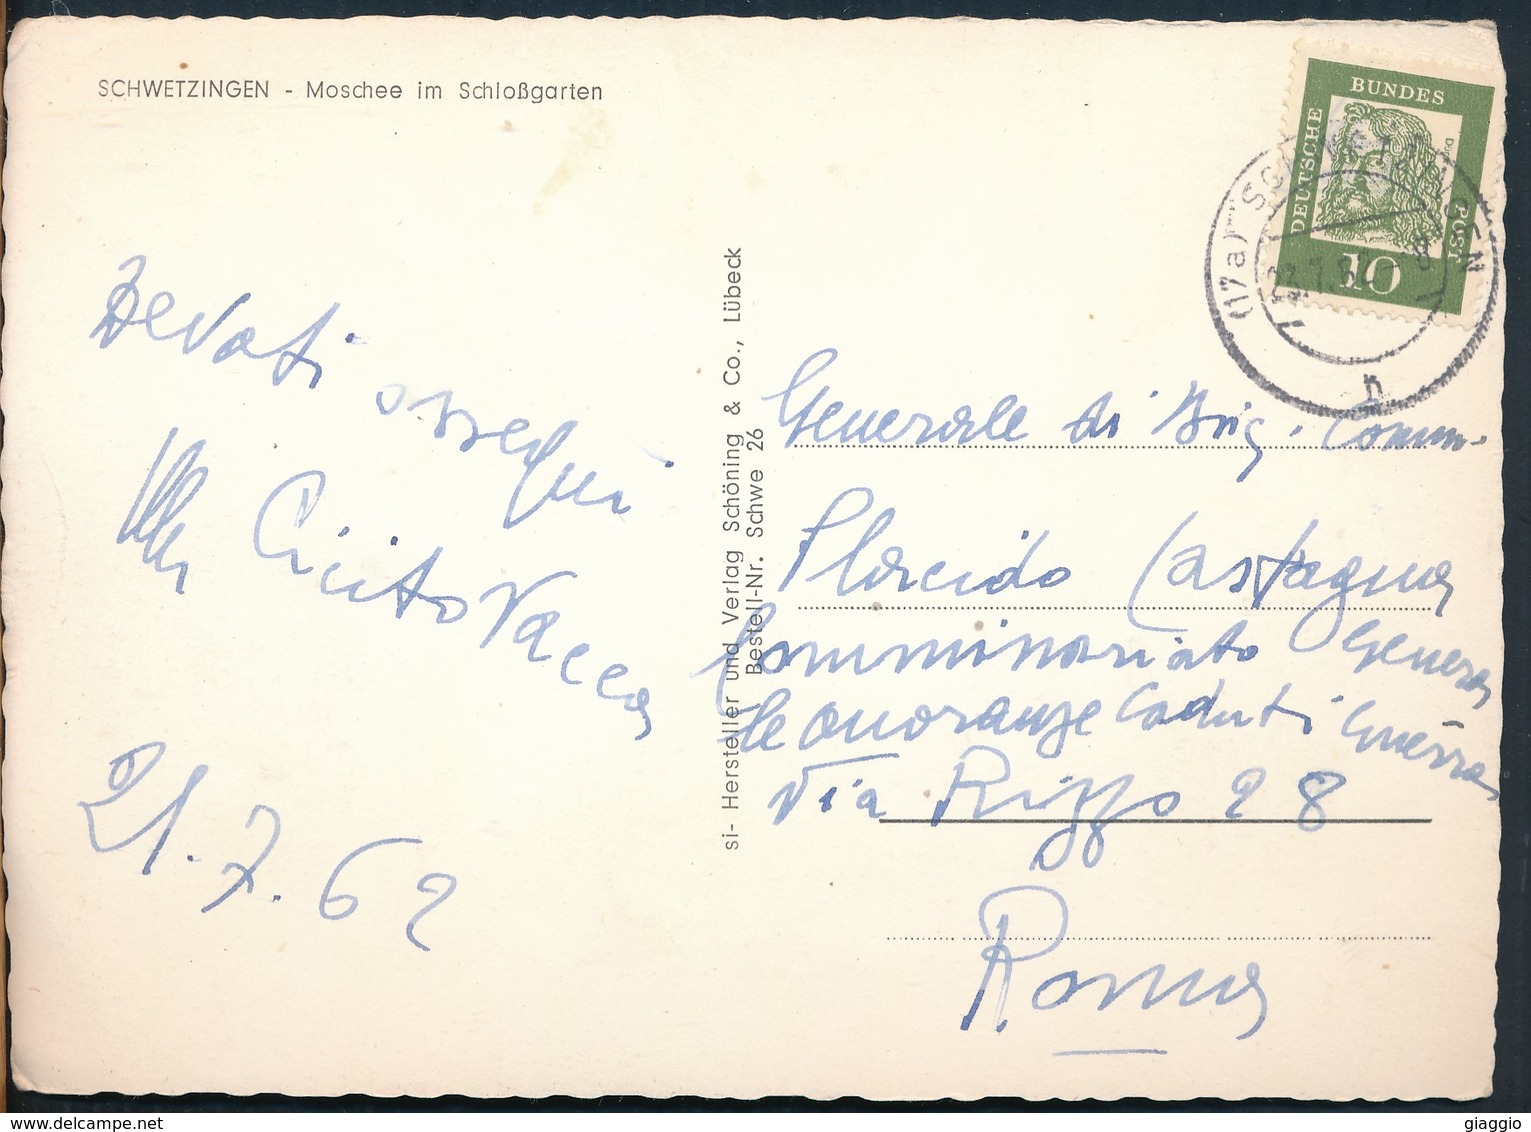 SCHWETZINGEN - Moschee im Schloßgarten
DEUTSCHE
BUNDES
POST
Dürer
10
(17a) SCHWETZINGEN
23.7.62 - 8
h
Devoti
ossequi
Cicito Vacca
21.7.62
si- Hersteller und Verlag Schöning & Co., Lübeck
Bestell-Nr. Schwe 26
Generale di Brig. Comm.
Placido Castagna
Commissariato Genera
le onoranze Caduti Guerra
Via Rizzo 28
Roma
delcampe.net
giaggio